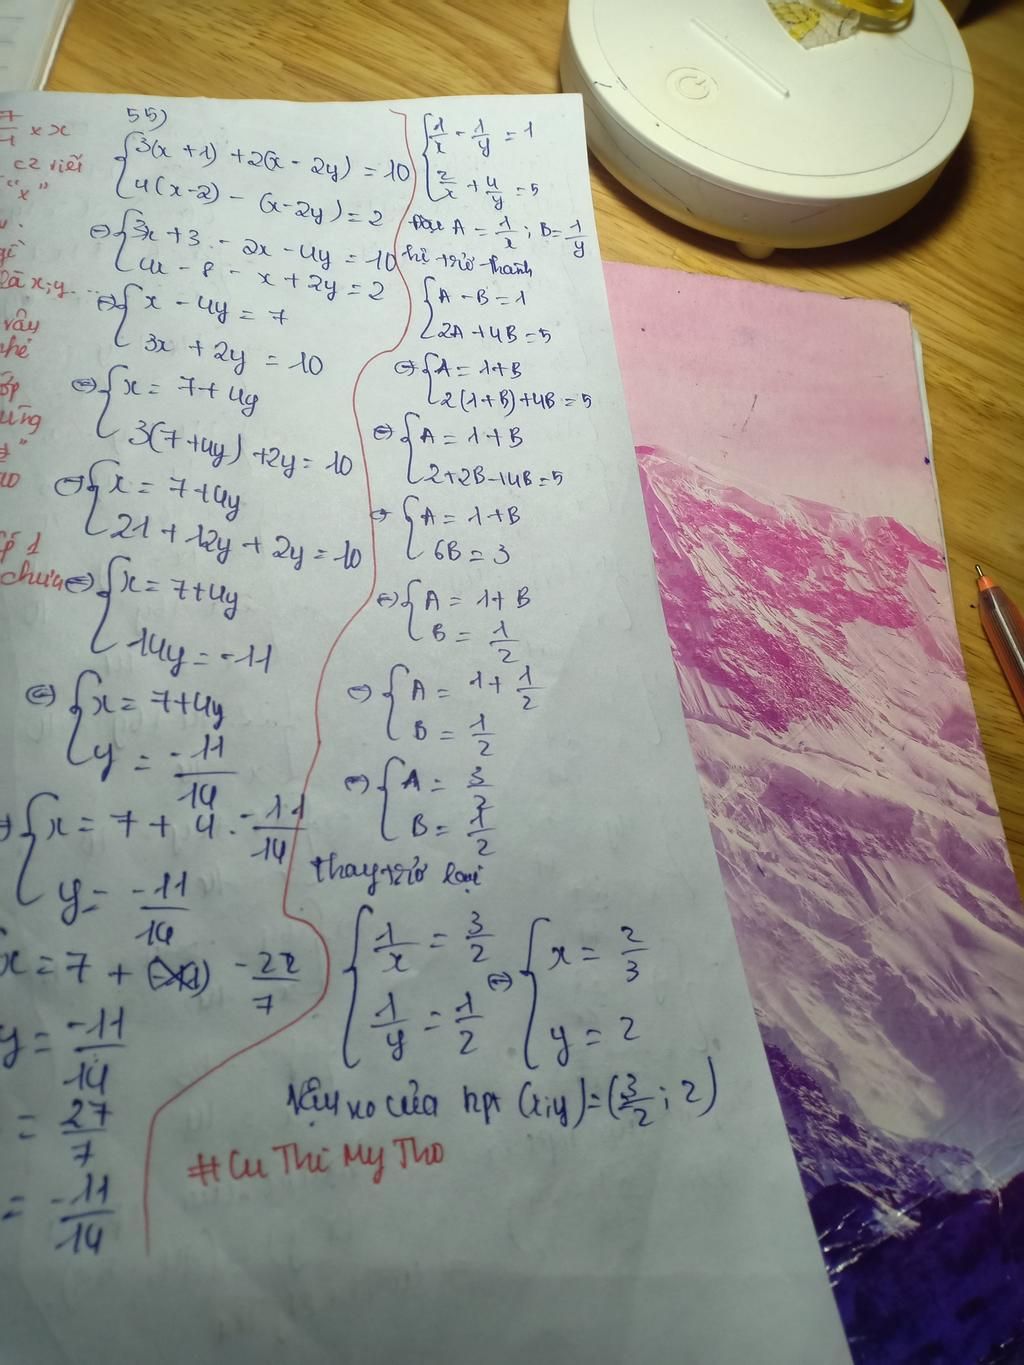 7/4 × x
cz viết
"x"
2à x;y...
vậy
nhé
1
chưa
55)
{3(x+1) + 2(x - 2y) = 10
{4(x-2) - (x-2y) = 2
⇔ {3x + 3 - 2x - 4y = 10
{4x - 8 - x + 2y = 2
⇔ {x - 4y = 7
{3x + 2y = 10
⇔ {x = 7+4y
{3(7+4y) + 2y = 10
⇔ {x = 7+4y
{21 + 12y + 2y = 10
⇔ {x = 7+4y
{14y = -11
⇔ {x = 7+4y
{y = -11/14
⇔ {x = 7 + 4 . -11/14
{y = -11/14
x = 7 + -22/7
y = -11/14
= 27/7
= -11/14
{1/x - 1/y = 1
{2/x + 4/y = 5
Đặt A = 1/x ; B = 1/y
hệ trở thành
{A - B = 1
{2A + 4B = 5
⇔ {A = 1+B
{2(1+B)+4B = 5
⇔ {A = 1+B
{2+2B+4B = 5
⇔ {A = 1+B
{6B = 3
⇔ {A = 1+B
{B = 1/2
⇔ {A = 1 + 1/2
{B = 1/2
⇔ {A = 3/2
{B = 1/2
thay trở lại
{1/x = 3/2 ⇔ {x = 2/3
{1/y = 1/2 {y = 2
Vậy no của hpt (x;y) = (3/2 ; 2)
#Cu Thi My Tho